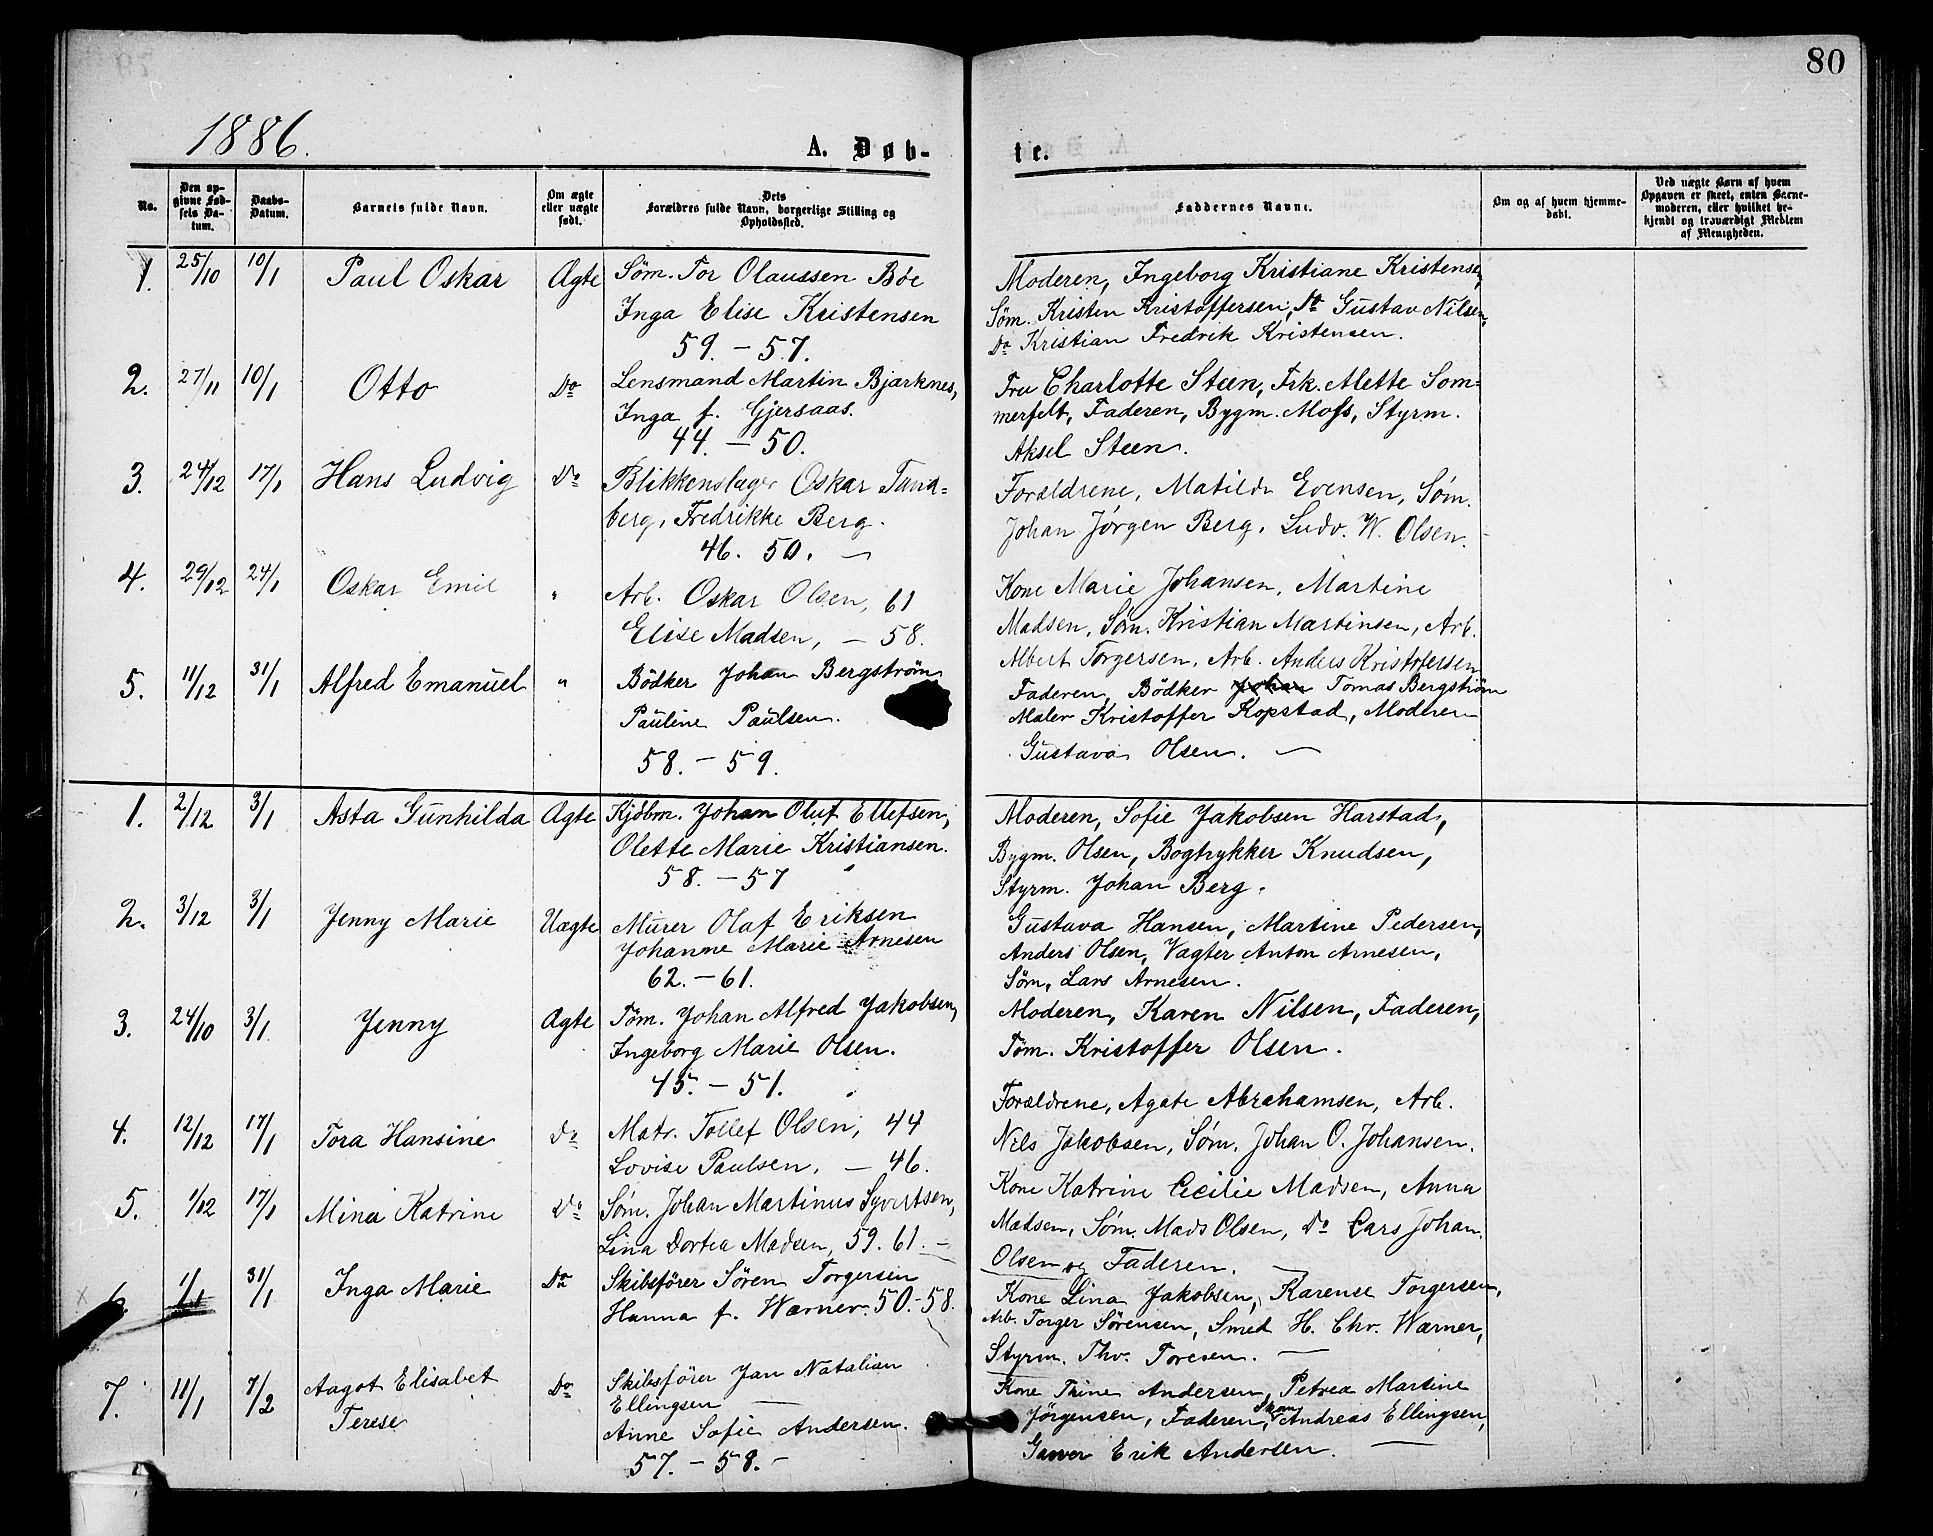 80
1886.
A. Døb-
te.
No.
Den op-
givne Fød-
sels Da-
tum.
Daabs-
Datum.
Barnets fulde Navn.
Om ægte
eller uægte
født.
Dets
Forældres fulde Navn, borgerlige Stilling og
Opholdssted.
Faddernes Navne.
Om og af hvem hjemme-
døbt.
Ved uægte Børn af hvem
Opgaven er skeet, enten Barne-
moderen, eller hvilket be-
kjendt og troværdigt Medlem
af Menigheden.
1. 25/10 10/1 Paul Oskar Ægte Søm. Tor Olaussen Bøe
Inga Elise Kristensen
59. - 57.
Moderen, Ingeborg Kristiane Kristensen,
Søm. Kristen Kristoffersen, Do Gustav Nilsen,
Do Kristian Fredrik Kristensen.
2. 27/11 10/1 Otto Do Lensmand Martin Bjørknes,
Inga f. Gjersaas.
44. - 50.
Fru Charlotte Steen, Frk. Alette Som=
merfelt, Faderen, Bygm. Moss, Styrm.
Aksel Steen.
3. 24/12 17/1 Hans Ludvig Do Blikkenslager Oskar Tand=
berg, Fredrikke Berg.
46. 50. -
Forældrene, Matilde Evensen, Søm.
Johan Jörgen Berg, Ludv. W. Olsen.
4. 29/12 24/1 Oskar Emil " Arb. Oskar Olsen, 61
Elise Madsen, - 58.
Kone Marie Johansen, Martine
Madsen, Søm. Kristian Martinsen, Arb.
Albert Torgersen, Arb. Anders Kristofersen
5. 11/12 31/1 Alfred Emanuel " Bödker Johan Bergström
Pauline Paulsen.
58. - 59.
Faderen, Bödker Johan Tomas Bergström
Maler Kristoffer Kopstad, Moderen
Gustava Olsen. -
1. 2/12 3/1 Asta Gunhilda Ægte Kjöbm. Johan Oluf Ellefsen,
Olette Marie Kristiansen.
58. - 57
Moderen, Sofie Jakobsen Harstad,
Bygm. Olsen, Bogtrykker Knudsen,
Styrm. Johan Berg.
2. 3/12 3/1 Jenny Marie Uægte Murer Olaf Eriksen
Johanne Marie Arnesen
62. - 61.
Gustava Hansen, Martine Pedersen,
Anders Olsen, Vagter Anton Arnesen,
Søm. Lars Arnesen.
3. 24/10 3/1 Jenny Ægte Töm. Johan Alfred Jakobsen,
Ingeborg Marie Olsen.
45. - 51.
Moderen, Karen Nilsen, Faderen,
Töm. Kristoffer Olsen.
4. 12/12 17/1 Tora Hansine Do Matr. Tollef Olsen, 44
Lovise Paulsen, - 46.
Forældrene, Agate Abrahamsen, Arb.
Nils Jakobsen, Søm. Johan O. Johansen.
5. 1/12 17/1 Mina Katrine Do Søm. Johan Martinus Syvertsen,
Lina Dortea Madsen, 59. 61. -
Kone Katrine Cecilie Madsen, Anna
Madsen, Søm. Mads Olsen, Do Lars Johan
Olsen og Faderen.
6. 1/1 31/1 Inga Marie Do Skibsförer Sören Torgersen
Hanna f. Wærner. 50. - 58.
Kone Lina Jakobsen, Karense Torgersen,
Arb. Torger Sörensen, Smed H. Chr. Wærner,
Styrm. Thv. Toresen. -
7. 11/1 7/2 Aagot Elisabet
Terese
Do Skibsförer Jan Natalian
Ellingsen -
Anne Sofie Andersen.
57. - 58. -
Kone Trine Andersen, Petrea Martine
Jörgensen, Faderen, Andreas Ellingsen,
Garver Erik Andersen. -